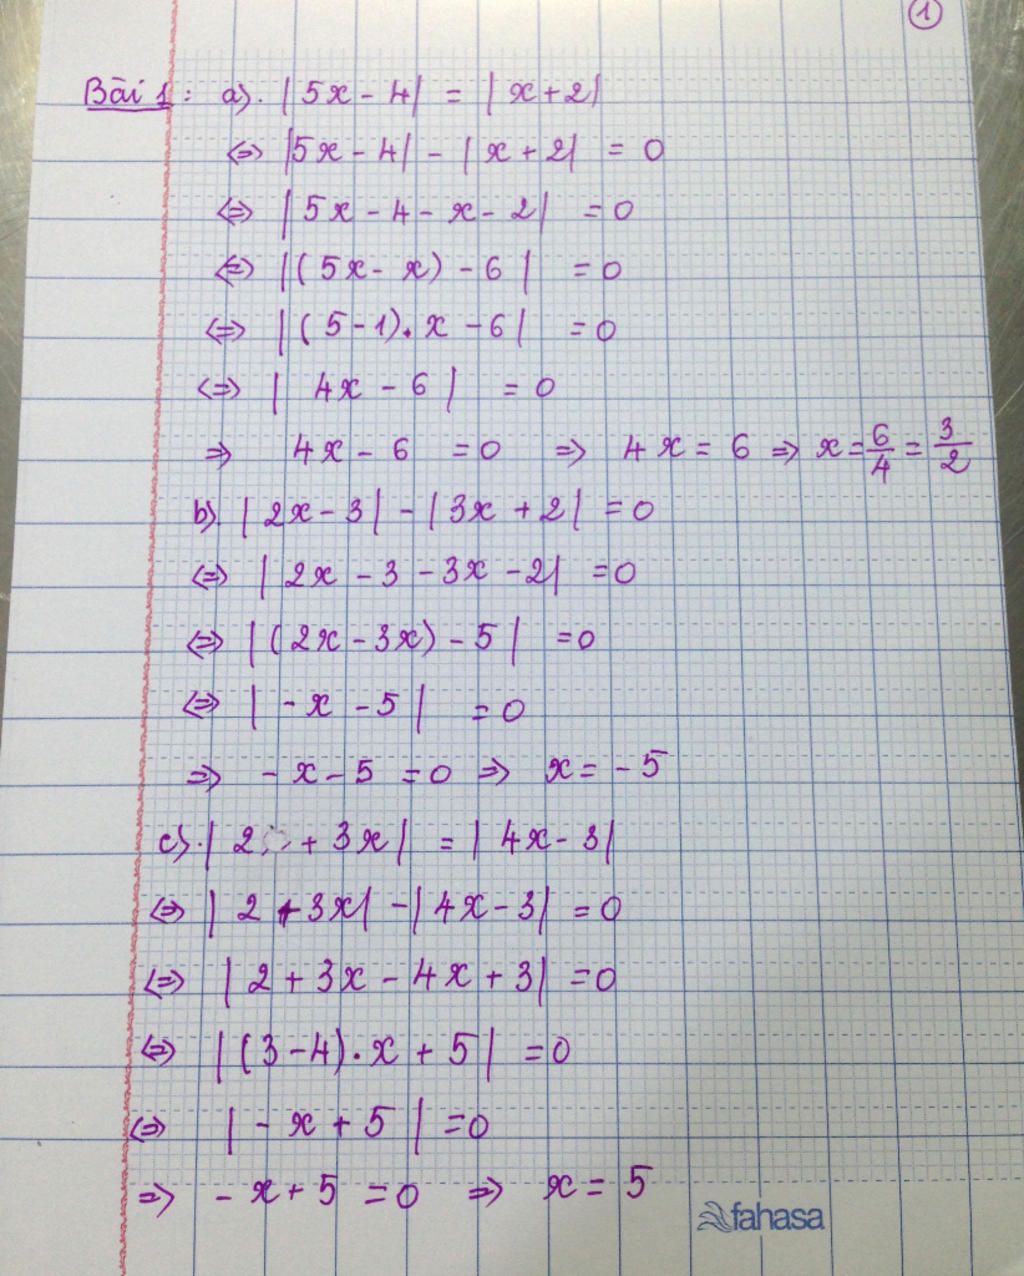 1
Bài 1: a). |5x - 4| = |x + 2|
⇔ |5x - 4| - |x + 2| = 0
⇔ |5x - 4 - x - 2| = 0
⇔ |(5x - x) - 6| = 0
⇔ |(5 - 1).x - 6| = 0
⇔ |4x - 6| = 0
⇒ 4x - 6 = 0 ⇒ 4x = 6 ⇒ x = 6/4 = 3/2
b). |2x - 3| - |3x + 2| = 0
⇔ |2x - 3 - 3x - 2| = 0
⇔ |(2x - 3x) - 5| = 0
⇔ |-x - 5| = 0
⇒ -x - 5 = 0 ⇒ x = -5
c). |2 + 3x| = |4x - 3|
⇔ |2 + 3x| - |4x - 3| = 0
⇔ |2 + 3x - 4x + 3| = 0
⇔ |(3 - 4).x + 5| = 0
⇔ |-x + 5| = 0
⇒ -x + 5 = 0 ⇒ x = 5
fahasa